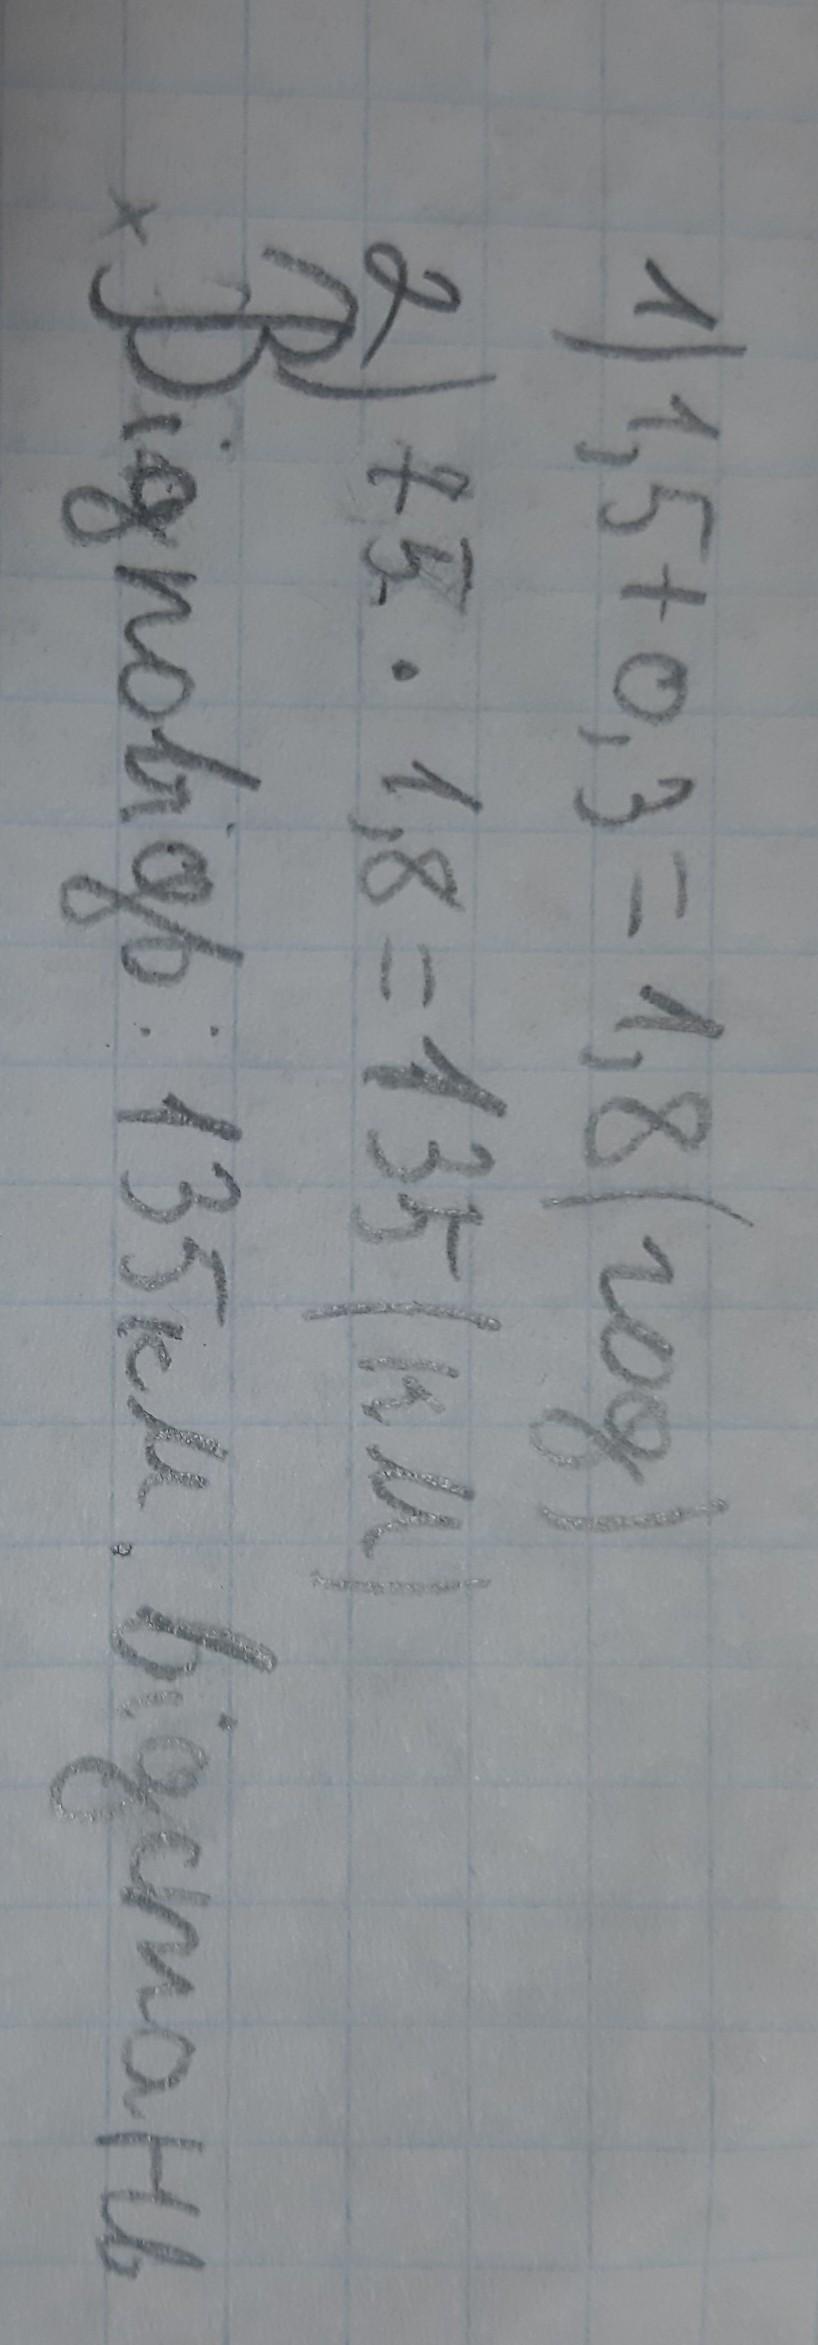 1) 1,5 + 0,3 = 1,8 (год)
2) 75 · 1,8 = 135 (км)
Відповідь: 135 км. відстань